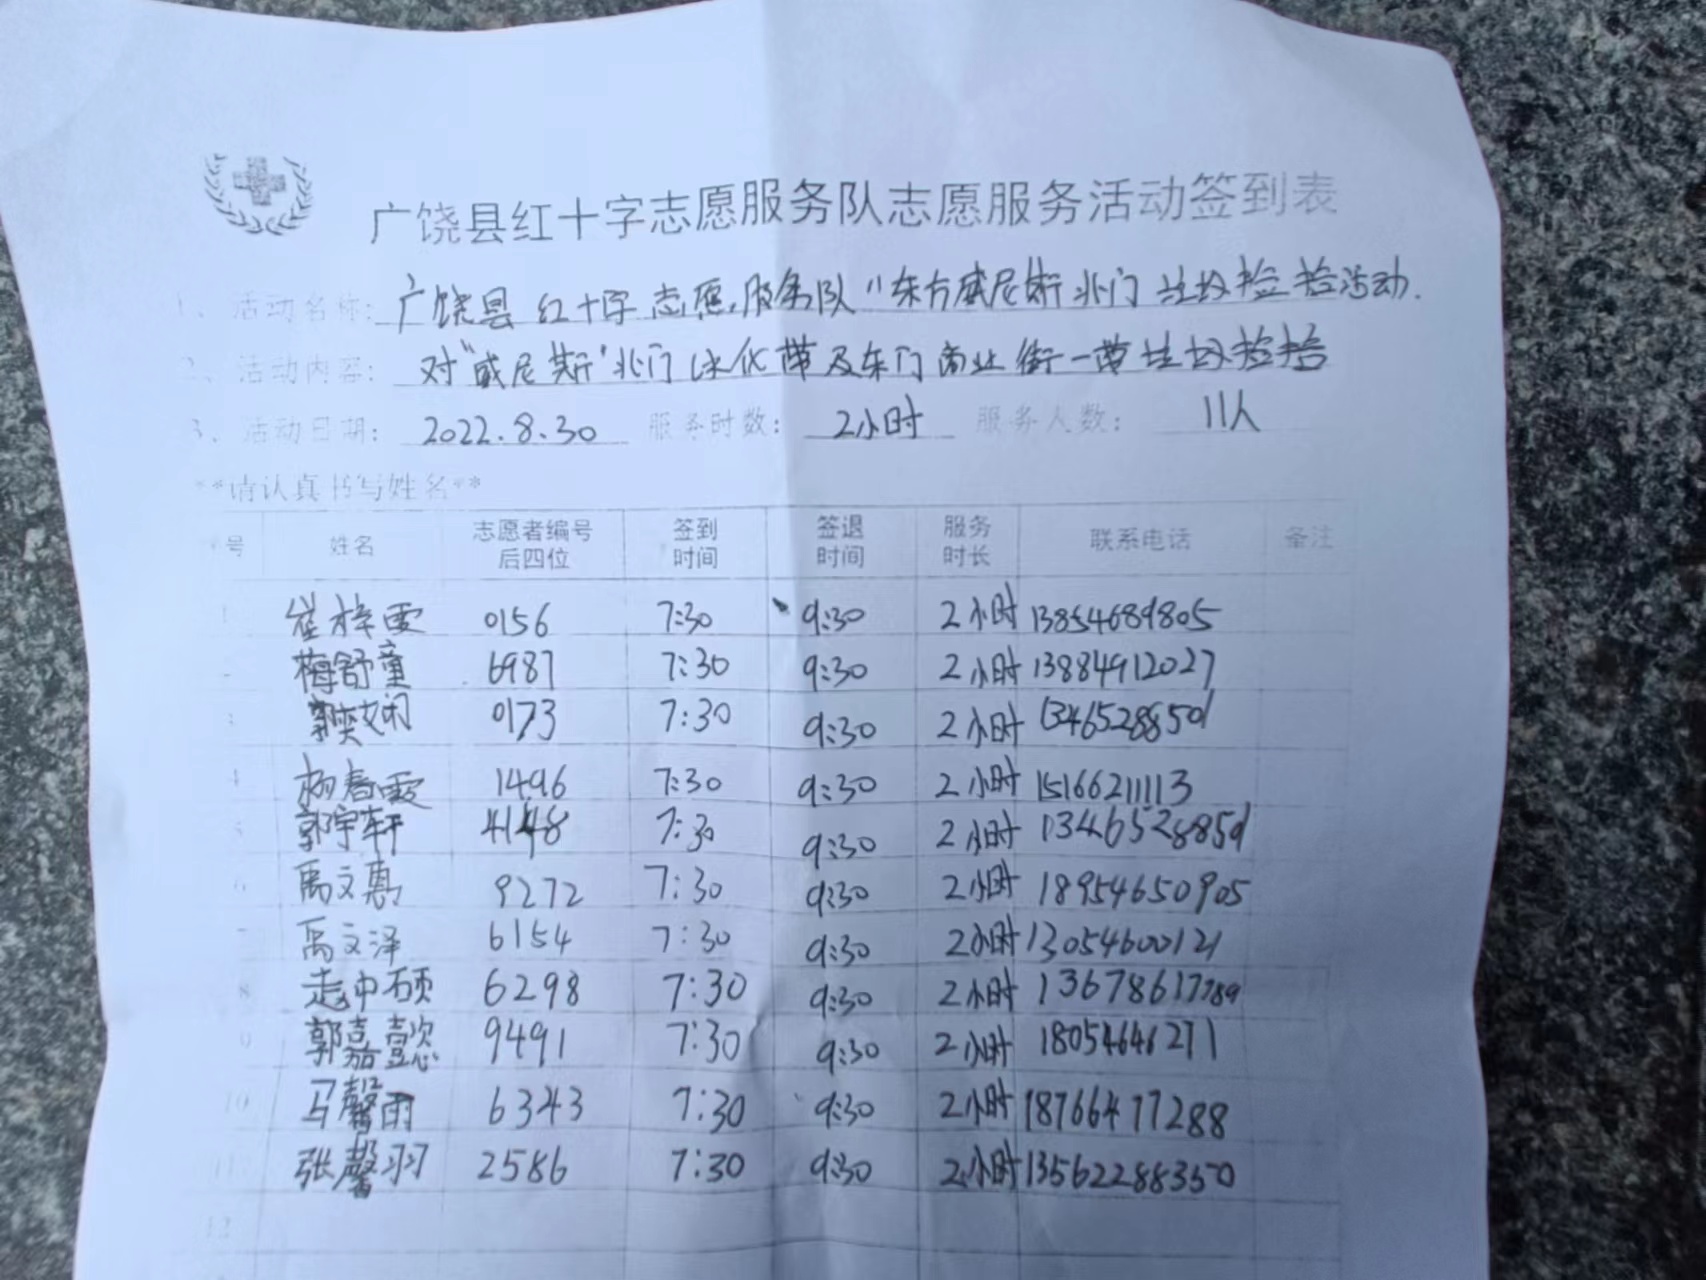 广饶县红十字志愿服务队志愿服务活动签到表
1、活动名称: 广饶县红十字志愿服务队"东方威尼斯北门垃圾捡拾活动.
2、活动内容: 对"威尼斯"北门绿化带及东门商业街一带垃圾捡拾
3、活动日期: 2022.8.30 服务时数: 2小时 服务人数: 11人
**请认真书写姓名**
号 姓名 志愿者编号后四位 签到时间 签退时间 服务时长 联系电话 备注
1 崔梓雯 0156 7:30 9:30 2小时 13854689805
2 梅舒童 6987 7:30 9:30 2小时 13884912027
3 郭奕娴 0173 7:30 9:30 2小时 13465288501
4 杨春霞 1496 7:30 9:30 2小时 15166211113
5 郭宇轩 4148 7:30 9:30 2小时 13465288501
6 禹文惠 9272 7:30 9:30 2小时 18954650905
7 禹文泽 6154 7:30 9:30 2小时 13054600121
8 中硕 6298 7:30 9:30 2小时 13678617789
9 郭嘉懿 9491 7:30 9:30 2小时 18054646271
10 马馨雨 6343 7:30 9:30 2小时 18766477288
11 张馨羽 2586 7:30 9:30 2小时 13562288350
12